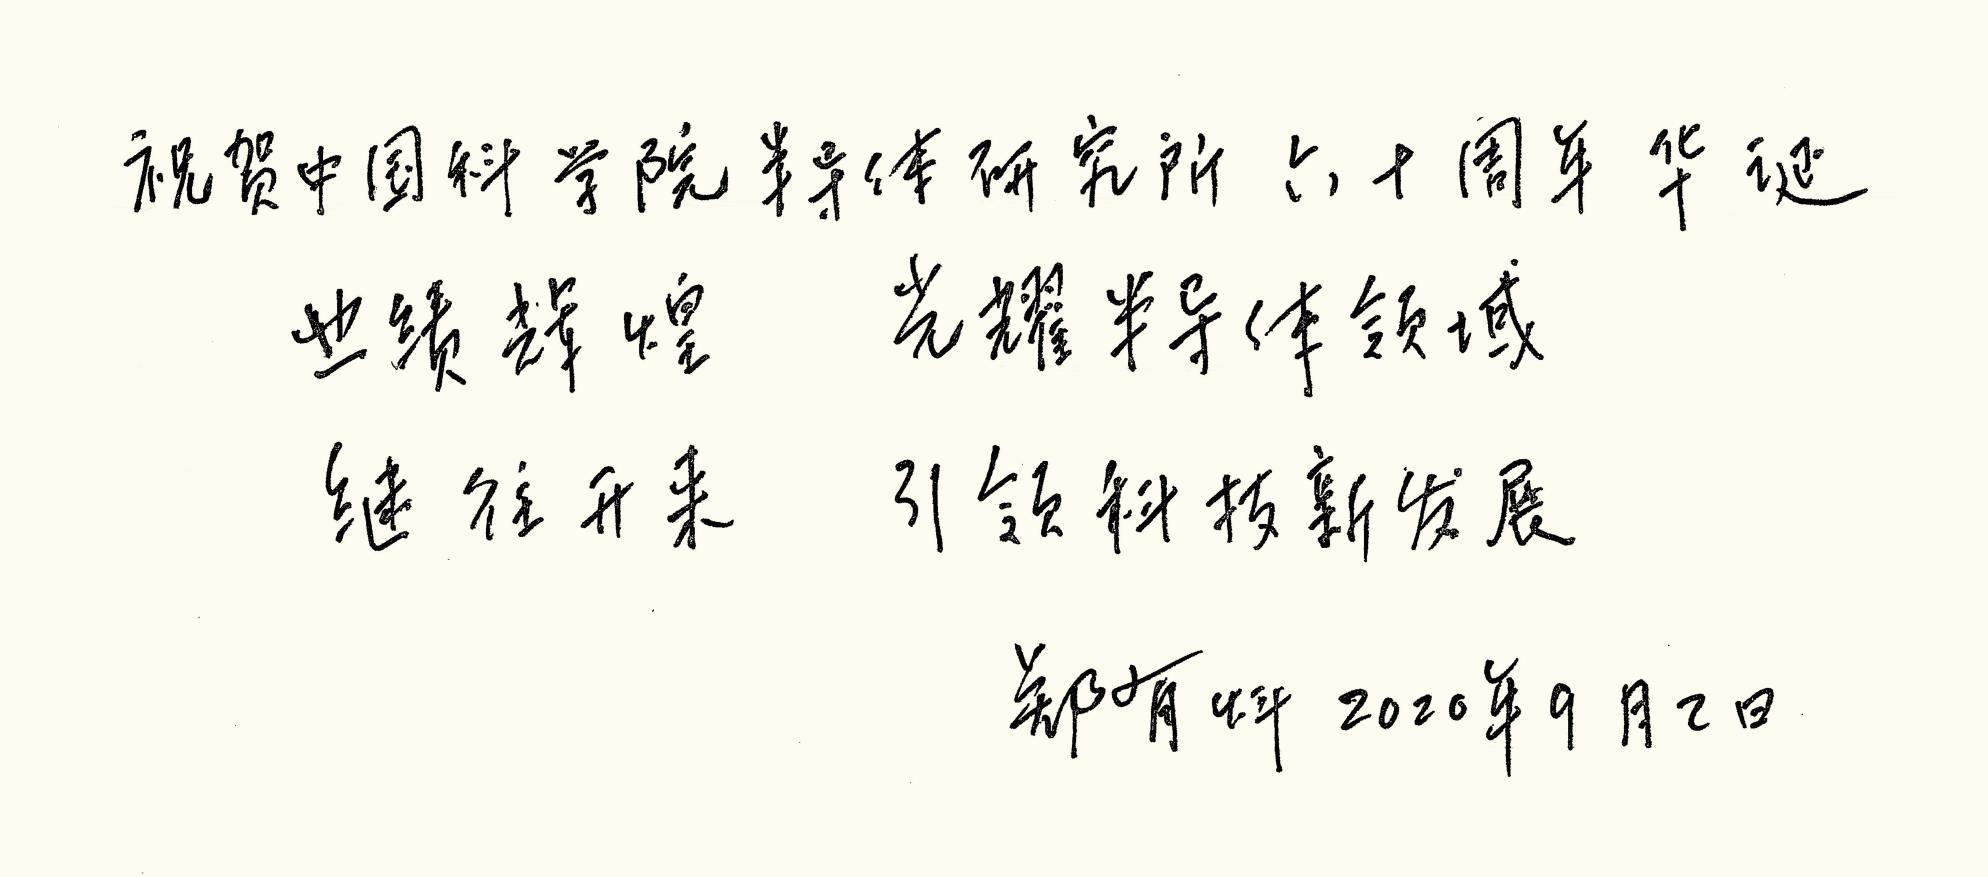 祝贺中国科学院半导体研究所六十周年华诞
业绩辉煌 光耀半导体领域
继往开来 引领科技新发展
郑有炓 2020年9月2日